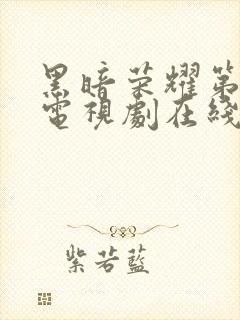 黑暗荣耀第
電視劇在綫
紫若藍